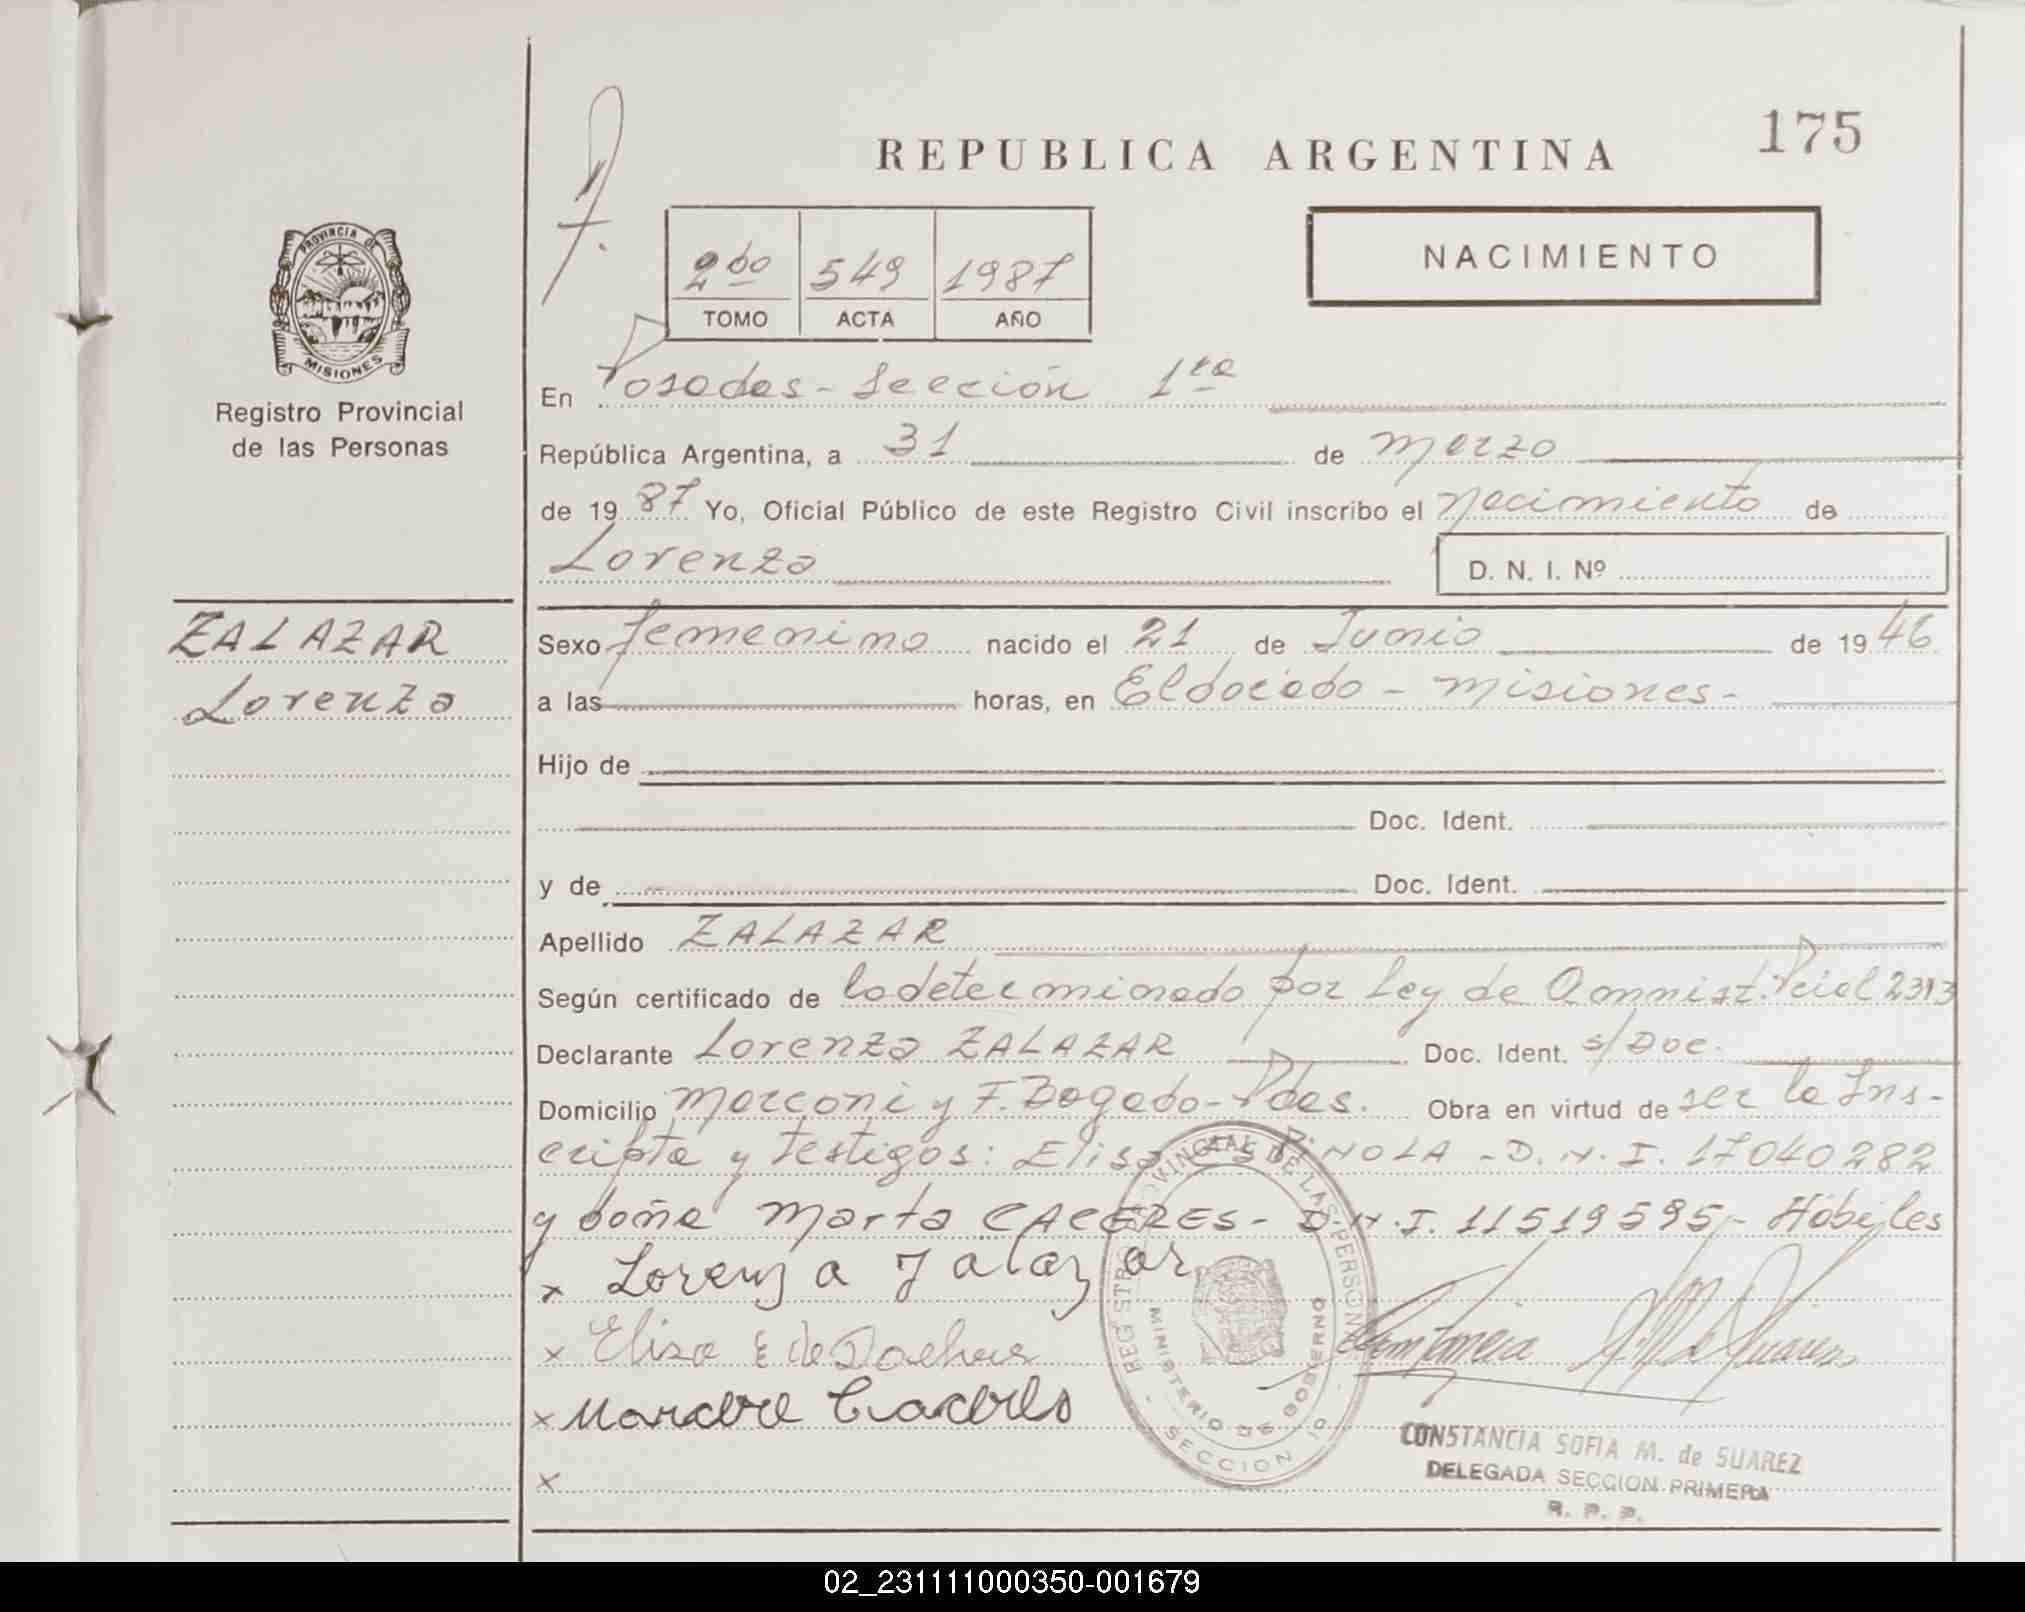 175
REPUBLICA ARGENTINA
NACIMIENTO
2do 549 1987
TOMO ACTA AÑO
PROVINCIA DE
MISIONES
Registro Provincial
de las Personas
En Posadas - Sección 1ra
República Argentina, a 31 de Marzo
de 1987 Yo, Oficial Público de este Registro Civil inscribo el Nacimiento de
Lorenza
D. N. I. Nº
ZALAZAR
Lorenza
Sexo femenino nacido el 21 de Junio de 1946
a las horas, en Eldorado - Misiones -
Hijo de
Doc. Ident.
y de Doc. Ident.
Apellido ZALAZAR
Según certificado de lo determinado por Ley de Amnist. Pcial 2393
Declarante Lorenza ZALAZAR Doc. Ident. s/Doc.
Domicilio Marconi y F. Bogado - Pdas. Obra en virtud de ser la Ins-
cripta y testigos: Elisa ESPINOLA - D.N.I. 17040282
y doña Marta CACERES - D.N.I. 11519595 - Hábiles
x Lorenza Zalazar
x Elisa E de
x
x
REGISTRO PROVINCIAL DE LAS PERSONAS
MINISTERIO DE GOBIERNO
- SECCION 1º -
CONSTANCIA SOFIA M. de SUAREZ
DELEGADA SECCION PRIMERA
R. P. P.
02_231111000350-001679